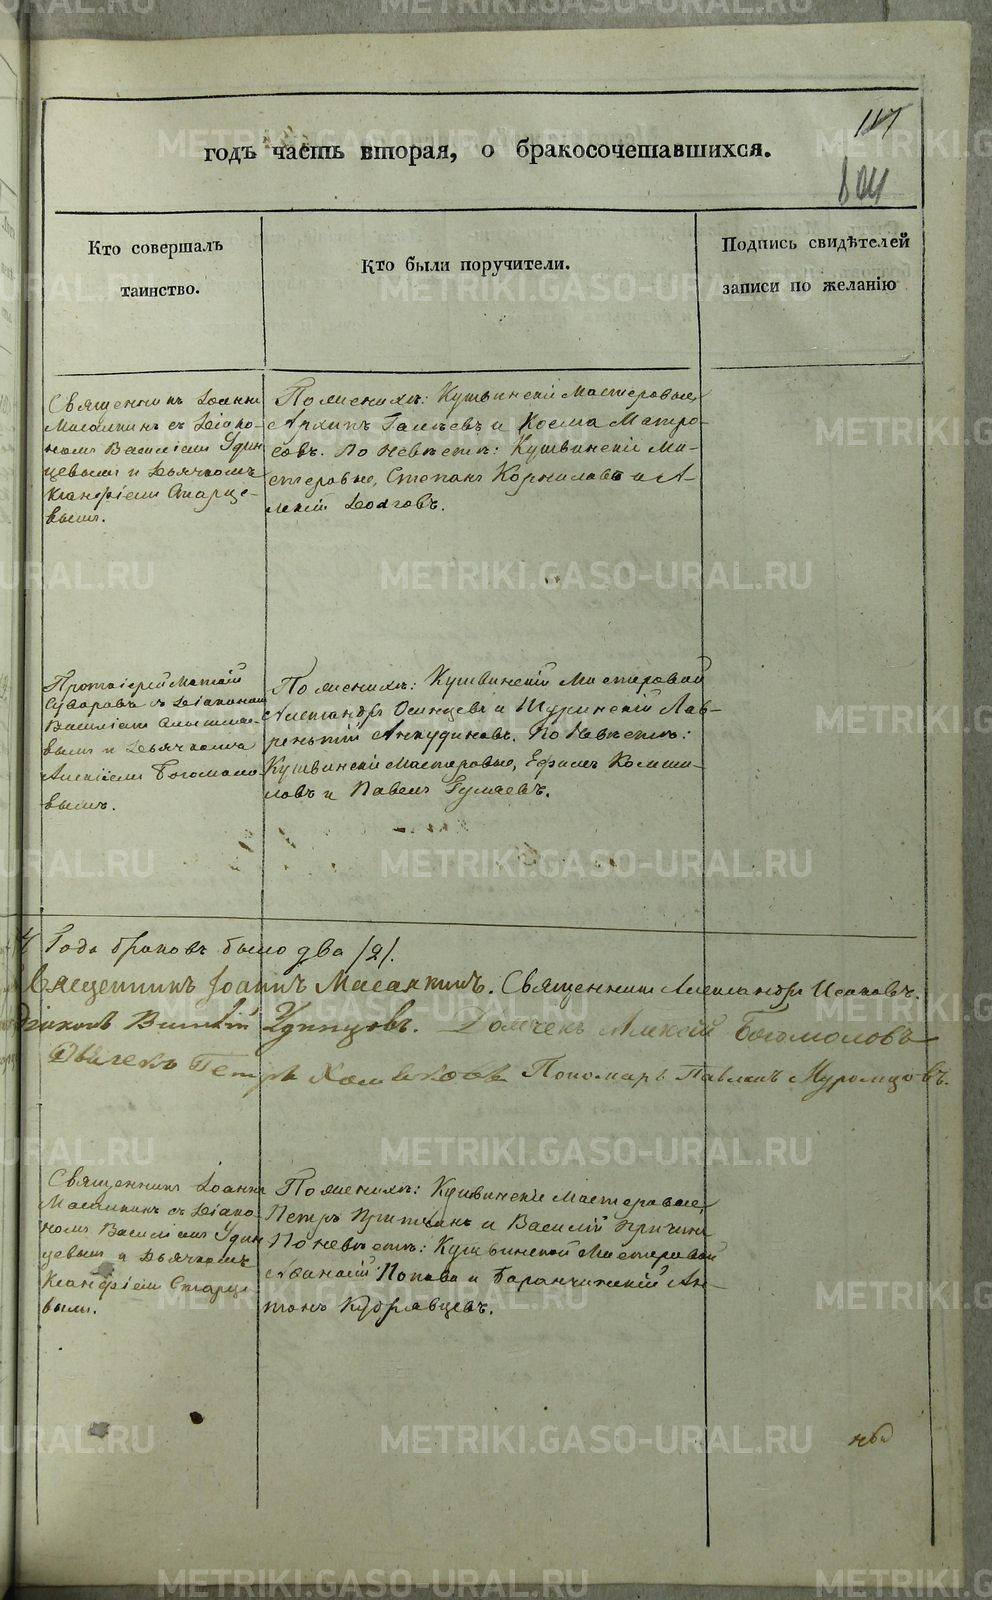 METRIKI.GASO-URAL.RU
117
годъ часть вторая, о бракосочетавшихся.
804
Кто совершалъ
таинство.
Кто были поручители.
Подпись свидѣтелей
записи по желанію
Священникъ Іоаннъ
Масалкинъ съ Діако-
номъ Василіемъ Удин
цевымъ и Дьячкомъ
Клавдіемъ Старце-
вымъ.
По женихѣ: Кушвинскіе Мастеровые,
Архипъ Галѣевъ и Косма Матро-
совъ. По невѣстѣ: Кушвинскіе Ма-
стеровые, Степанъ Корниловъ и А-
лексій Долговъ.
Протоіерей Матѳій
Суворовъ съ Діакономъ
Василіемъ
вымъ и Дьячкомъ
Алексіемъ Богомоло-
вымъ.
По женихѣ: Кушвинскій Мастеровой
Александръ Осинцевъ и Туринскій Лав-
рентій Анкудиновъ. По Невѣстѣ:
Кушвинскіе Мастеровые, Ефимъ Корни-
ловъ и Павелъ Гуляевъ.
Года браковъ было два /2/.
Священникъ Іоаннъ Масалкинъ. Священникъ Александръ Исаковъ.
Діаконъ Василій Удинцовъ. Дьячекъ Алексій Богомоловъ
Дьячекъ Петръ Пономарь Павелъ Муромцовъ.
Священникъ Іоаннъ
Масалкинъ съ Діако-
номъ Василіемъ Удин
цевымъ и Дьячкомъ
Клавдіемъ Старце-
вымъ.
По женихѣ: Кушвинскіе Мастеровые,
Петръ и Василій
По невѣстѣ: Кушвинской Мастеровой
Аѳанасій Поповъ и Баранчинскій Ан-
тонъ Кудрявцевъ.